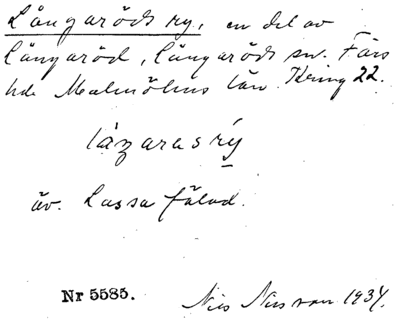 Långaröds ry, en del av
Långaröd, Långaröds sn. Färs
hd. Malmöhus län. Kring 22.
lázarasrý
äv. Lassa fälad.
Nr 5585.
Nils Nilsson 1937.